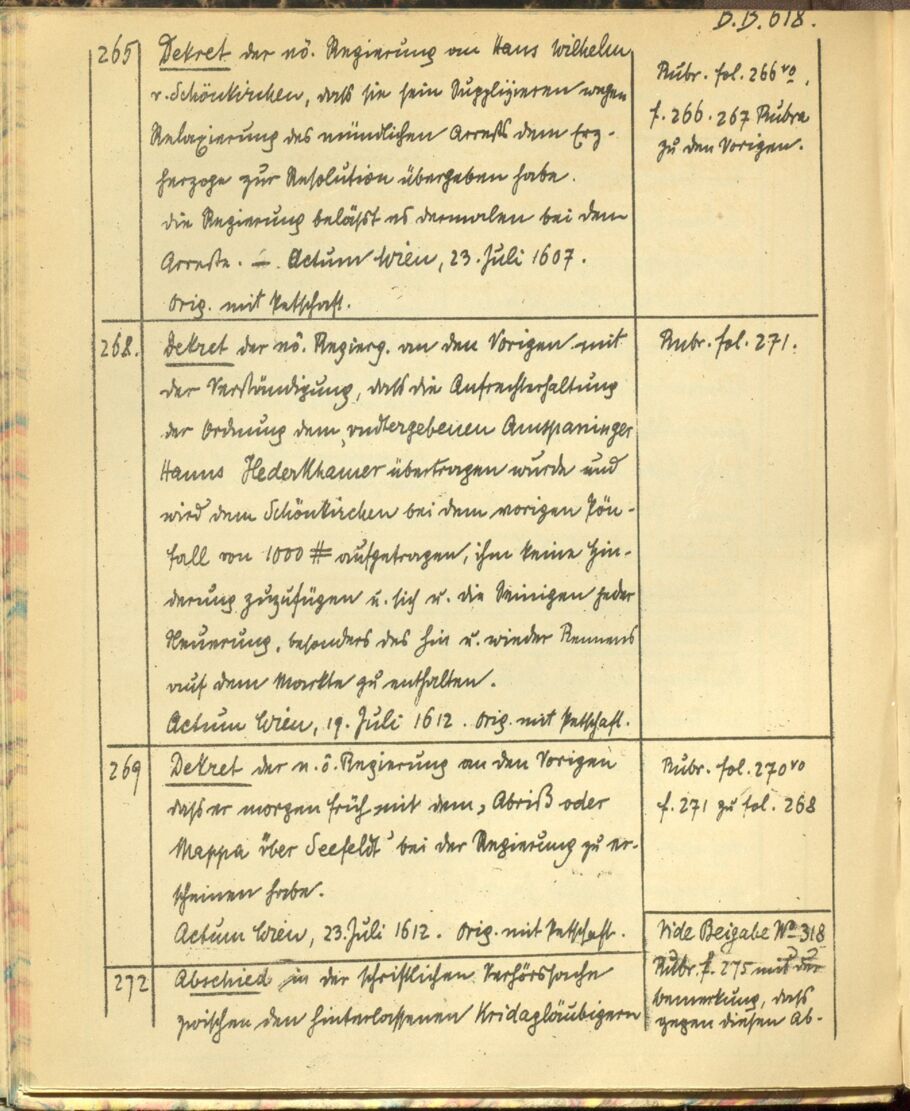 D.B. 618.
265 Dekret der nö. Regierung an Hans Wilhelm
v. Schönkirchen, daß sie sein Supplizieren wegen
Relaxierung des mündlichen Arrests dem Erz-
herzoge zur Resolution übergeben habe.
Die Regierung beläßt es dermalen bei dem
Arreste. – Actum Wien, 23. Juli 1607.
Orig. mit Petschaft.
Rubr. fol. 266 vo,
f. 266. 267 Rubra
zu den Vorigen.
268. Dekret der nö. Regierg. an den Vorigen mit
der Verständigung, daß die Aufrechterhaltung
der Ordnung dem „vndtergebenen Amtspaninger
Hanns Hederkhamer übertragen wurde und
wird dem Schönkirchen bei dem vorigen Pön-
fall von 1000 # aufgetragen, ihm keine Hin-
derung zuzufügen u. sich u. die Seinigen jeder
Neuerung, besonders des hin u. wieder Rennens
auf dem Markte zu enthalten.
Actum Wien, 19. Juli 1612. Orig. mit Petschaft.
Rubr. fol. 271.
269 Dekret der n.ö. Regierung an den Vorigen
daß er morgen früh mit dem „Abriß oder
Mappa über Seefeldt' bei der Regierung zu er-
scheinen habe.
Actum Wien, 23. Juli 1612. Orig. mit Petschaft.
Rubr. fol. 270 vo
f. 271 zu fol. 268
272 Abschied in der schriftlichen Verhörssache
zwischen den hinterlassenen Kridagläubigern
Vide Beigabe No 318
Rubr. f. 275 mit der
Bemerkung, daß
gegen diesen Ab-